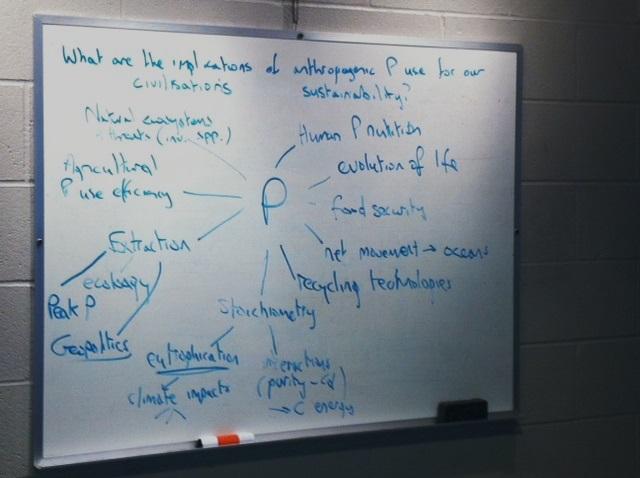 What are the implications of anthropogenic P use for our
civilisations sustainability?
Natural ecosystems
threats (inv. spp.)
Agricultural
P use efficiency
Extraction
ecology
Peak P
Geopolitics
P
Human P nutrition
evolution of life
food security
net movement → oceans
recycling technologies
Stoichiometry
eutrophication
climate impacts
interactions
(purity - Cd)
→ C energy